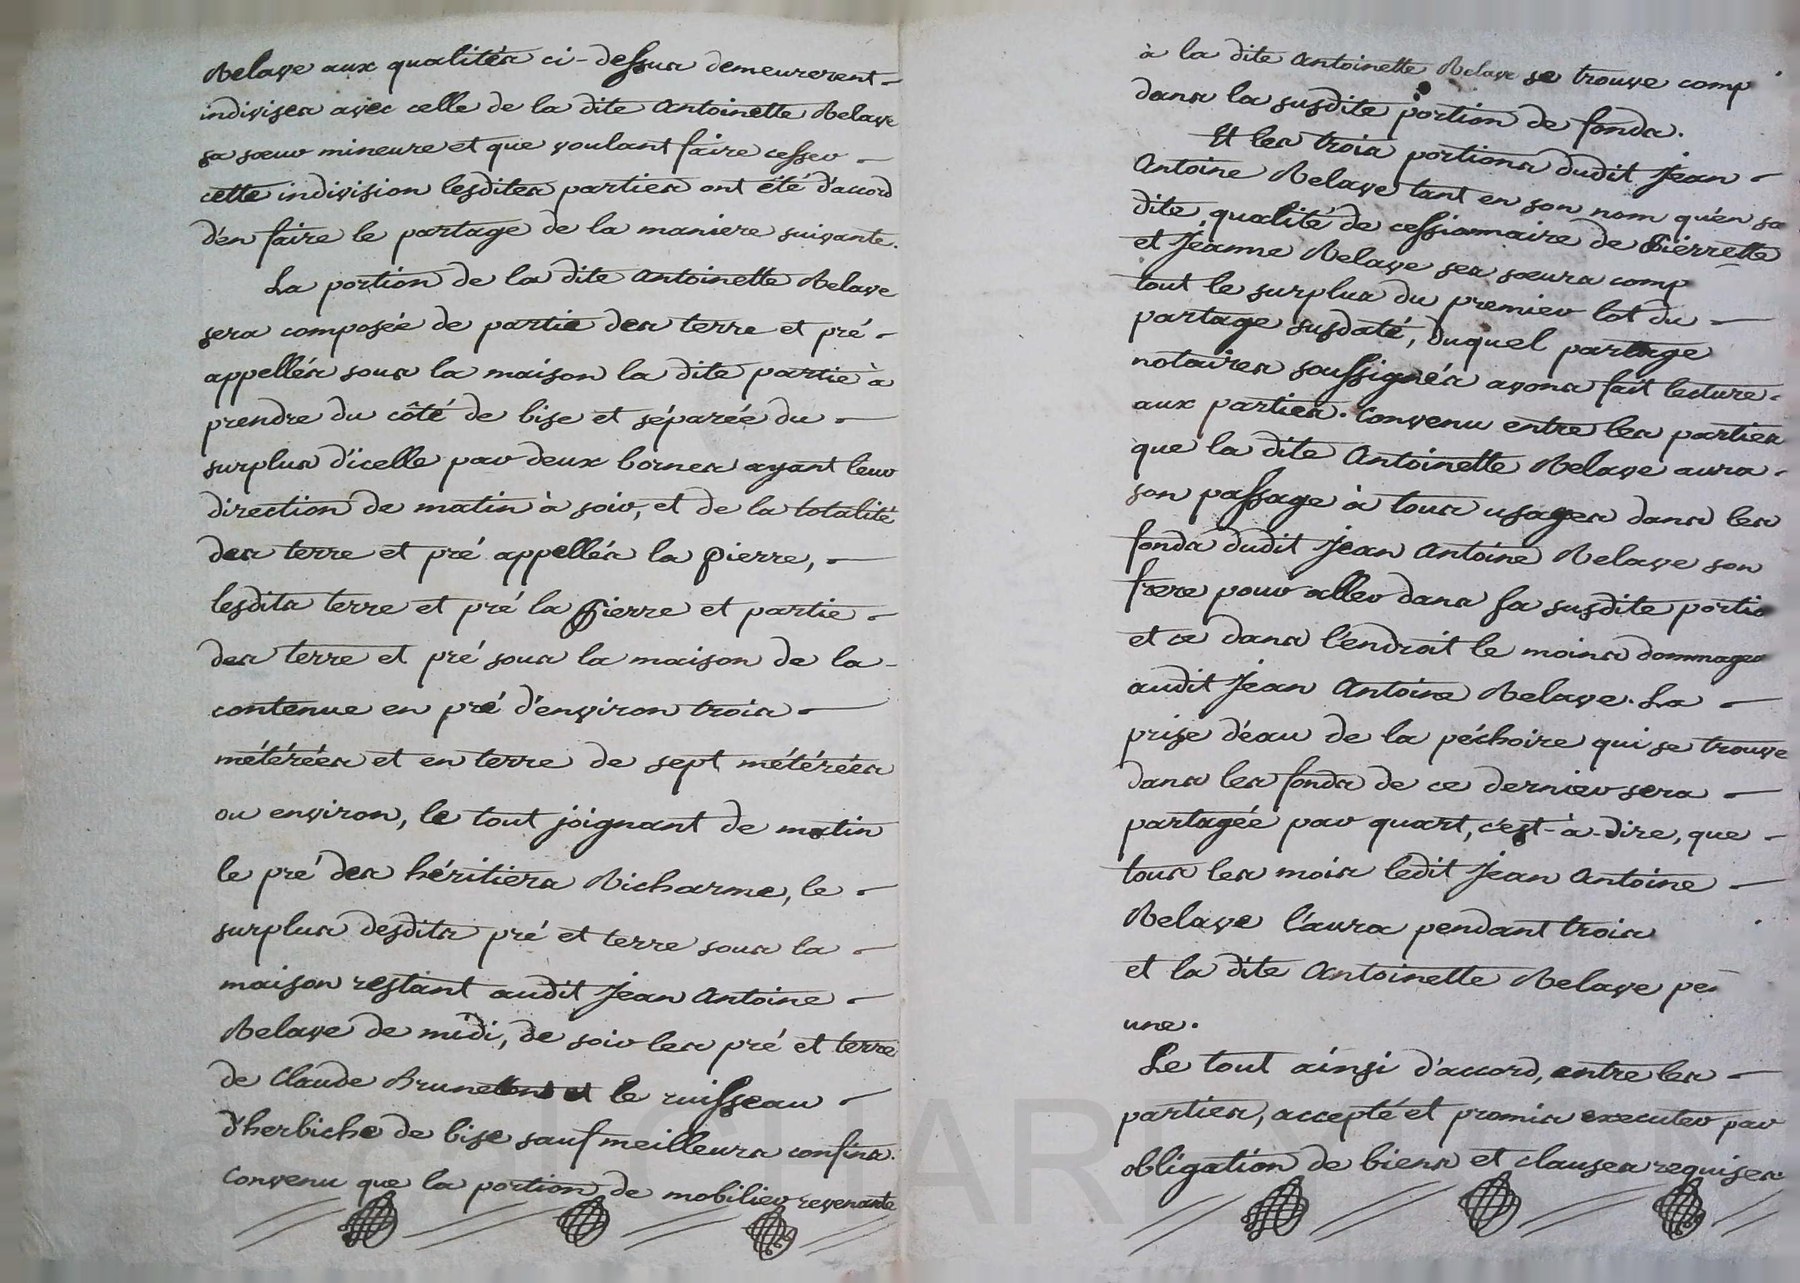 Relave aux qualités ci-dessus demeurerent
indivises avec celle de la dite Antoinette Relave
sa sœur mineure et que voulant faire cesser
cette indivision lesdites parties ont été d'accord
d'en faire le partage de la maniere suivante.
La portion de la dite Antoinette Relave
sera composée de partie des terre et pré
appellés sous la maison la dite partie à
prendre du côté de bise et séparée du
surplus d'icelle par deux bornes ayant leur
direction de matin à soir, et de la totalité
des terre et pré appellés la pierre,
lesdits terre et pré la Pierre et partie
des terre et pré sous la maison de la
contenue en pré d'environ trois
métérées et en terre de sept métérées
ou environ, le tout joignant de matin
le pré des héritiers Richarme, le
surplus desdits pré et terre sous la
maison restant audit Jean Antoine
Relave de midi, de soir les pré et terre
de Claude Brunet le ruisseau
d'herbiche de bise sauf meilleurs confins.
Convenu que la portion de mobilier revenante
à la dite Antoinette Relave se trouve comp
dans la susdite portion de fonds.
Et les trois portions dudit Jean
Antoine Relave tant en son nom qu'en sa
dite qualité de cessionnaire de Pierrette
et Jeanne Relave ses sœurs comp
tout le surplus du premier lot du
partage susdaté, duquel partage
notaires soussignés avons fait lecture
aux parties. Convenu entre les parties
que la dite Antoinette Relave aura
son passage à tous usages dans les
fonds dudit Jean Antoine Relave son
frere pour aller dans sa susdite portio
et ce dans l'endroit le moins dommagea
audit Jean Antoine Relave. La
prise d'eau de la péchoire qui se trouve
dans les fonds de ce dernier sera
partagée par quart, c'est-à-dire, que
tous les mois ledit Jean Antoine
Relave l'aura pendant trois
et la dite Antoinette Relave pe
une.
Le tout ainsi d'accord, entre les
parties, accepté et promis executer par
obligation de biens et clauses requises